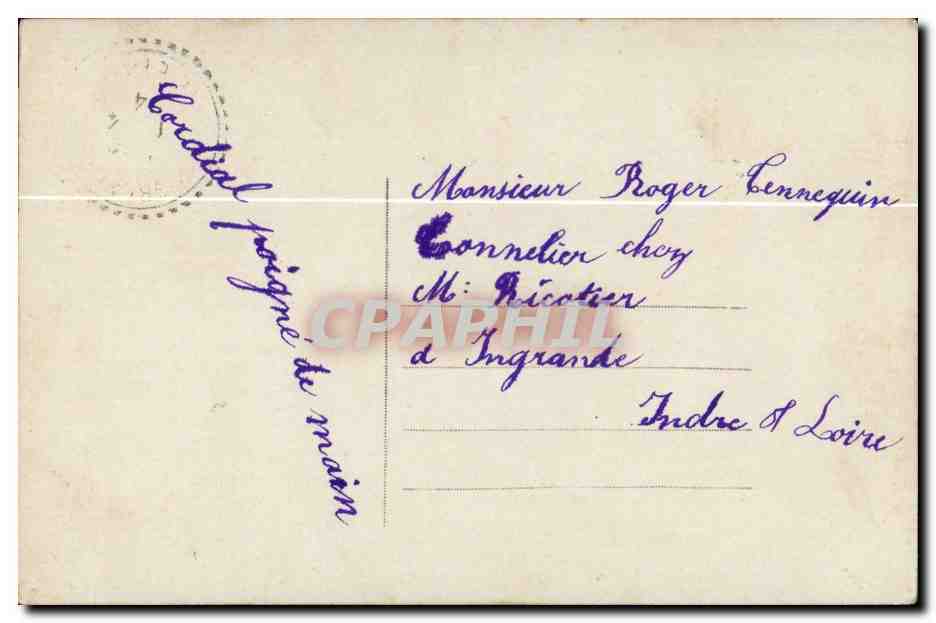 Cordial poigné de main
Monsieur Roger Tennequin
Tonnelier chez
M: Ricotier
d Ingrande
Indre & Loire
CPAPHIL